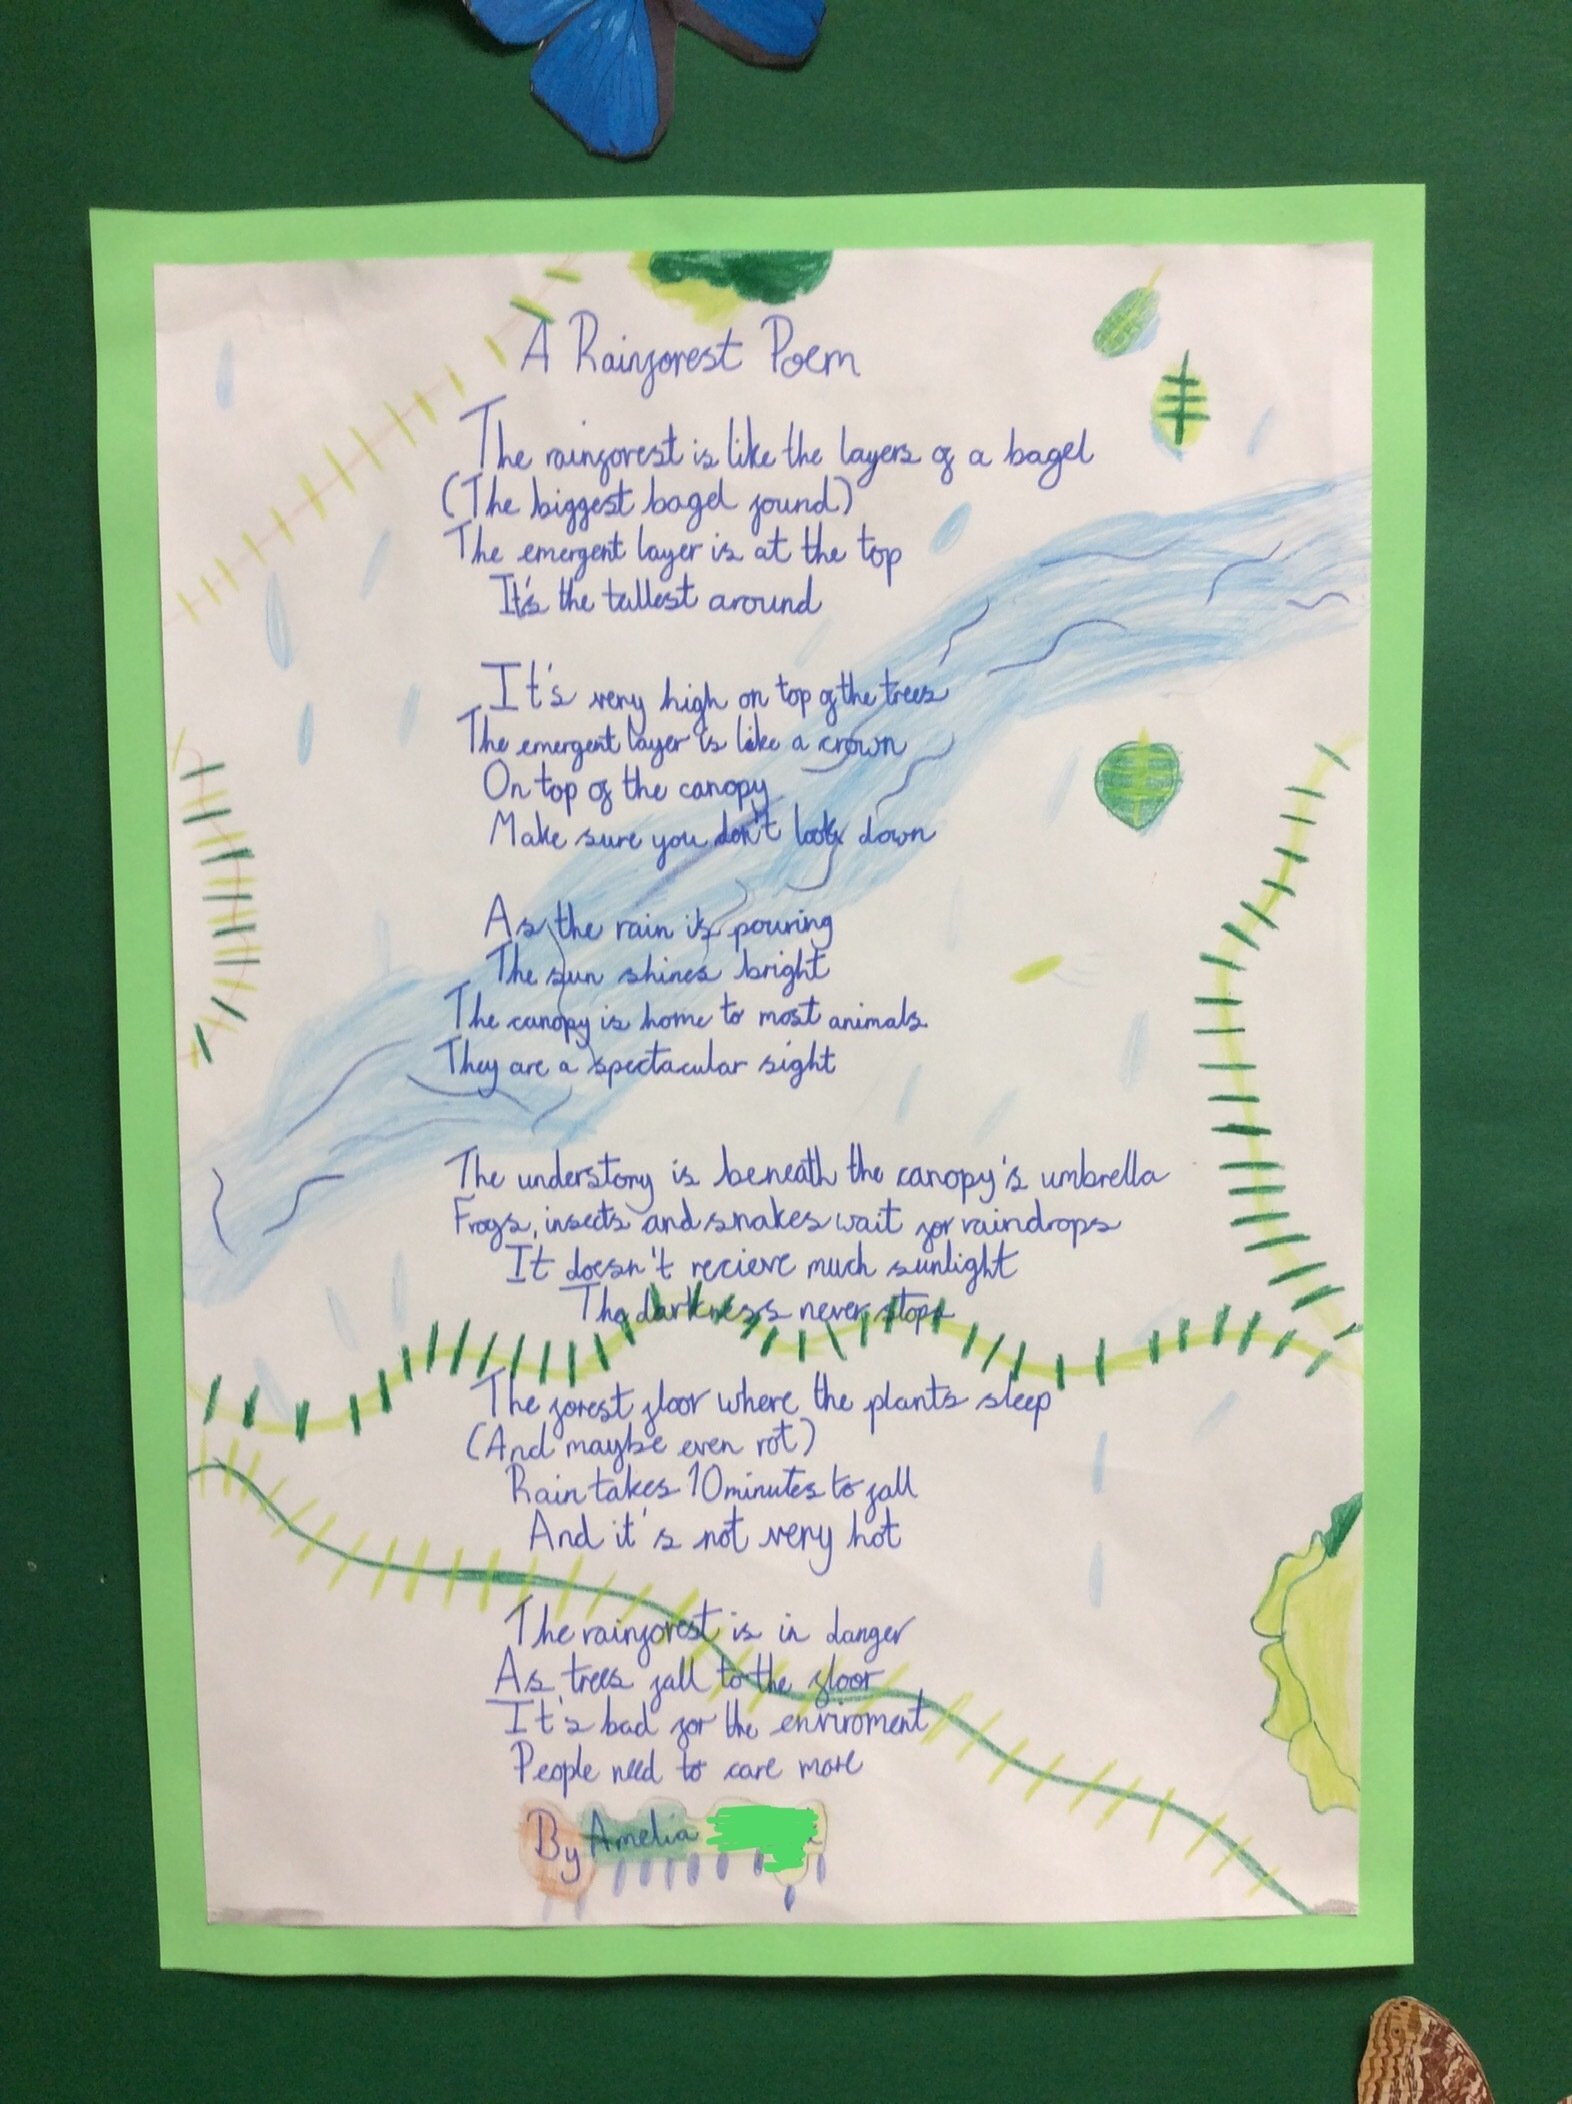 A Rainforest Poem
The rainforest is like the layers of a bagel
(The biggest bagel found)
The emergent layer is at the top
It's the tallest around
It's very high on top of the trees
The emergent layer is like a crown
On top of the canopy
Make sure you don't look down
As the rain is pouring
The sun shines bright
The canopy is home to most animals
They are a spectacular sight
The understory is beneath the canopy's umbrella
Frogs, insects and snakes wait for raindrops
It doesn't recieve much sunlight
The darkness never stops
The forest floor where the plants sleep
(And maybe even rot)
Rain takes 10 minutes to fall
And it's not very hot
The rainforest is in danger
As trees fall to the floor
It's bad for the enviroment
People need to care more
By Amelia